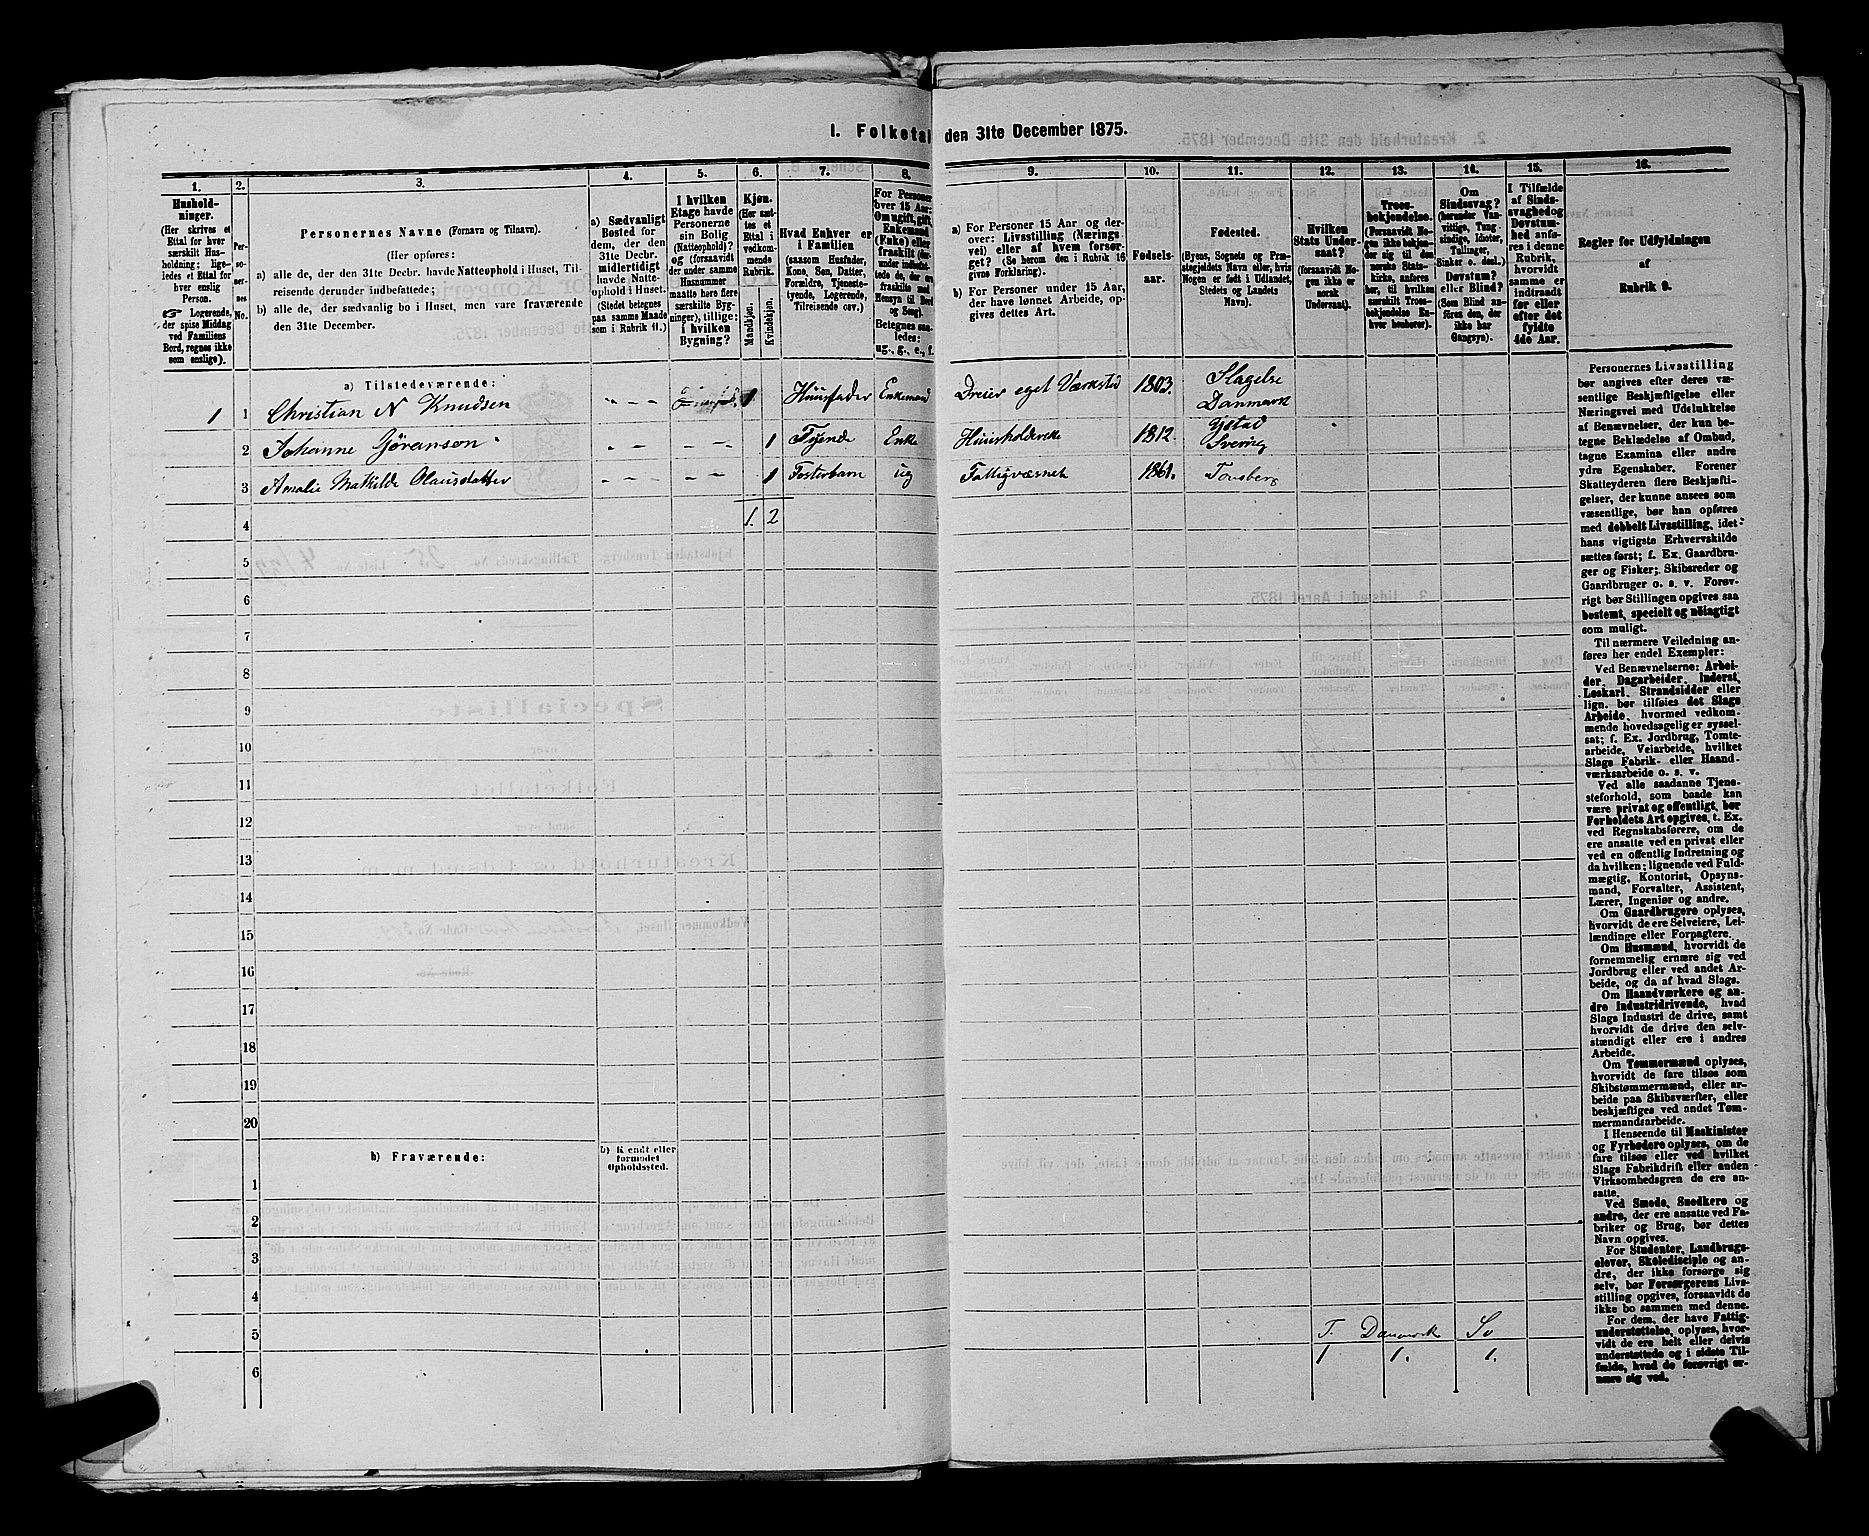 I. Folketal den 31te December 1875.
1.
2.
3.
4.
5.
6.
7.
8.
9.
10.
11.
12.
13.
14.
15.
16.
Hushold-
ninger.
(Her skrives et
Ettal for hver
særskilt Hus-
holdning; lige-
ledes et Ettal for
hver enslig
Person.
☞ Logerende,
der spise Middag
ved Familiens
Bord, regnes ikke
som enslige).
Per-
so-
ner-
nes
No.
Personernes Navne (Fornavn og Tilnavn).
(Her opføres:
a) alle de, der den 31te Decbr. havde Natteophold i Huset, Til-
reisende derunder indbefattede;
b) alle de, der sædvanlig bo i Huset, men vare fraværende
den 31te December.
a) Sædvanligt
Bosted for
dem, der den
31te Decbr.
midlertidigt
havde Natte-
ophold i Huset.
(Stedet betegnes
paa samme Maade
som i Rubrik 11.)
I hvilken
Etage havde
Personerne
sin Bolig
(Natteophold)?
og (forsaavidt
der under samme
Husnummer
maatte høre flere
særskilte Byg-
ninger), tillige:
i hvilken
Bygning?
Kjøn.
(Her sæt-
tes et
Ettal i
vedkom-
mende
Rubrik.
Mandkjøn.
Kvindekjøn.
Hvad Enhver er
i Familien
(saasom Husfader,
Kone, Søn, Datter,
Forældre, Tjeneste-
tyende, Logerende,
Tilreisende osv.)
For Personer
over 15 Aar:
Om ugift, gift,
Enkemand
(Enke) eller
fraskilt
Betegnes saa-
ledes:
ug., g., e., f.
a) For Personer 15 Aar og der-
over: Livsstilling (Nærings-
vei) eller af hvem forsør-
get? (Se herom den i Rubrik 16
givne Forklaring).
b) For Personer under 15 Aar,
der have lønnet Arbeide, op-
gives dettes Art.
Fødsels-
aar.
Fødested.
(Byens, Sognets og Præ-
stegjeldets Navn eller, hvis
Nogen er født i Udlandet,
Stedets og Landets
Navn).
Hvilken
Stats Under-
saat?
(forsaavidt No-
gen ikke er
norsk
Undersaat).
Troes-
bekjendelse.
(Forsaavidt No-
gen ikke bekjen-
der sig til den
norske Stats-
kirke, anføres
her, til hvilken
særskilt Troes-
bekjendelse En-
hver henhører).
Om
Sindssvag?
(herunder Van-
vittige, Tung-
sindige, Idioter,
Tullinger,
Sinker o. desl.).
Døvstum?
eller Blind?
(Som Blind an-
føres den, der
ikke har
Gangsyn).
I Tilfælde
af Sinds-
svaghed og
Døvstum-
hed anfø-
res i denne
Rubrik,
hvorvidt
samme er
indtraadt
før eller
efter det
fyldte
4de Aar.
Regler for Udfyldningen
af
Rubrik 9.
a) Tilstedeværende:
1 1 Christian N Knudsen " - - 1 Huusfader Enkemand Dreier eget Værksted 1803. Slagelse Danmark
2 Johanne Jøransen - - - - - 1 Tyende Enke Huusholderske 1812. Ystad Sverrig
3 Amalie Mathilde Olausdatter - - - - - 1 Fosterbarn ug Fattigvæsenet 1861. Tønsberg
4 1. 2
5
6
7
8
9
10
11
12
13
14
15
16
17
18
19
20
b) Fraværende:
b) Kjendt eller
formodet
Opholdssted.
1
2
3
4
5 T. Danmark Sv
6 1 1. 1.
Personernes Livsstilling
bør angives efter deres væ-
sentlige Beskjæftigelse eller
Næringsvei med Udelukkelse
af Benævnelser, der kun be-
tegne Beklædelse af Ombud,
tagne Examina eller andre
ydre Egenskaber. Forener
Skatteyderen flere Beskjæfti-
gelser, der kunne ansees som
væsentlige, bør han opføres
med dobbelt Livsstilling, idet
hans vigtigste Erhvervskilde
sættes først; f. Ex. Gaardbru-
ger og Fisker; Skibsreder og
Gaardbruger o. s. v. Forøv-
rigt bør Stillingen opgives saa
bestemt, specielt og nøiagtigt
som muligt.
Til nærmere Veiledning an-
føres her endel Exempler:
Ved Benævnelserne: Arbei-
der, Dagarbeider, Inderst,
Løskarl, Strandsidder eller
lign. bør tilføies det Slags
Arbeide, hvormed vedkom-
mende hovedsagelig er syssel-
sat; f. Ex. Jordbrug, Tomte-
arbeide, Veiarbeide, hvilket
Slags Fabrik- eller Haand-
værksarbeide o. s. v.
Ved alle saadanne Tjene-
steforhold, som baade kan
være privat og offentligt, bør
Forholdets Art opgives, t. Ex.
ved Regnskabsførere, om de
ere ansatte ved en privat eller
ved en offentlig Indretning og
da hvilken; lignende ved Fuld-
mægtig, Kontorist, Opsyns-
mand, Forvalter, Assistent,
Lærer, Ingeniør og andre.
Om Gaardbrugere oplyses,
hvorvidt de ere Selveiere, Lei-
lændinge eller Forpagtere.
Om Husmænd, hvorvidt de
fornemmelig ernære sig ved
Jordbrug eller ved andet Ar-
beide, og da af hvad Slags.
Om Haandværkere og an-
dre Industridrivende, hvad
Slags Industri de drive, samt
hvorvidt de drive den selv-
stændigt eller ere i andres
Arbeide.
Om Tømmermænd oplyses,
hvorvidt de fare tilsøs som
Skibstømmermænd, eller ar-
beide paa Skibsværfter, eller
beskjæftiges ved andet Tøm-
mermandsarbeide.
I Henseende til Maskinister
og Fyrbødere oplyses, om de
fare tilsøs eller ved hvilket
Slags Fabrikdrift eller anden
Virksomhedsgren de ere an-
satte.
Ved Smede, Snedkere og
andre, der ere ansatte ved Fa-
briker og Brug, bør dettes
Navn opgives.
For Studenter, Landbrugs-
elever, Skoledisciple og an-
dre, der ikke forsørge sig
selv, bør Forsørgerens Livs-
stilling opgives, forsaavidt de
ikke bo sammen med denne.
For dem, der have Fattig-
understøttelse, oplyses, hvor-
vidt de ere helt eller delvis
understøttede og i sidste Til-
fælde, hvad de forøvrigt er-
nære sig ved.